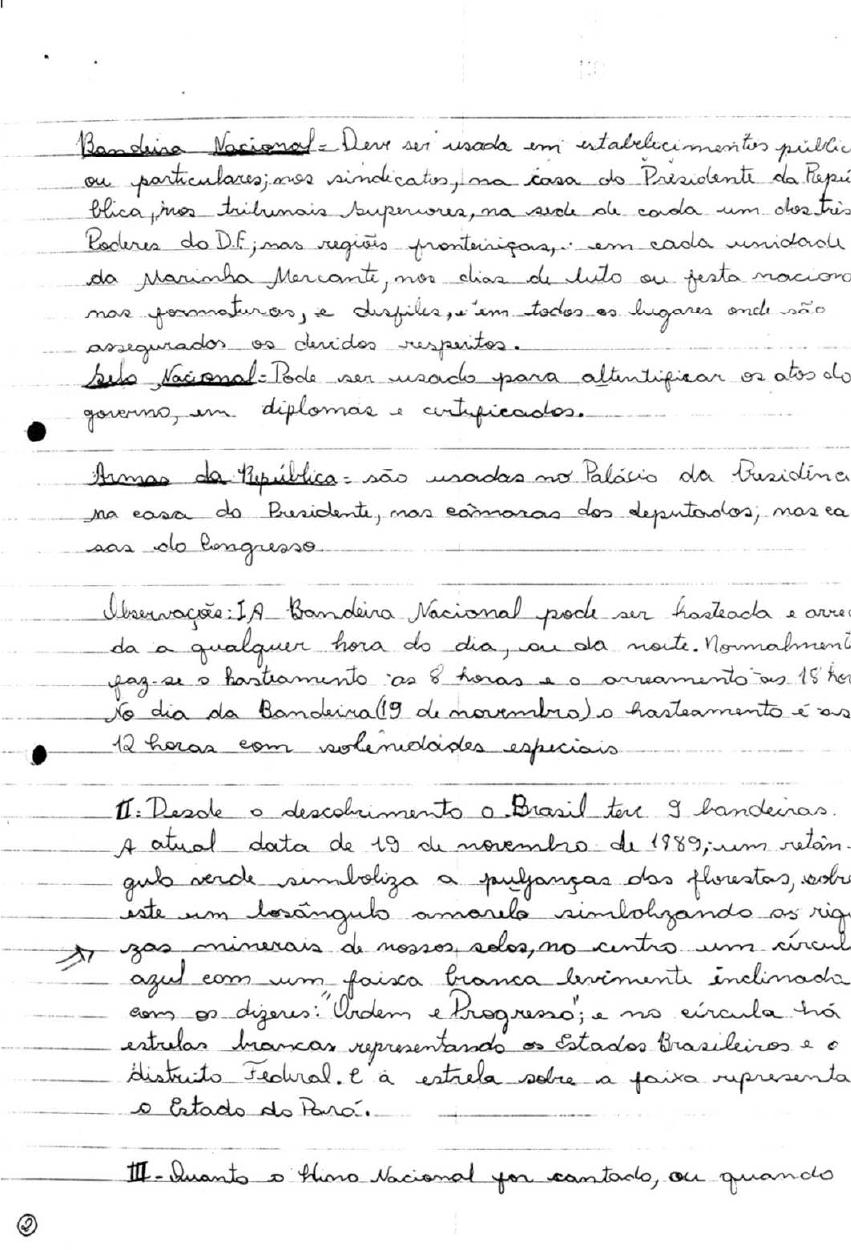 Bandeira Nacional = Deve ser usada em estabelecimentos públic
ou particulares; nos sindicatos, na casa do Presidente da Repú
blica, nos tribunais superiores, na sede de cada um dos três
Poderes do D.F; nas regiões fronteiriças, em cada unidade
da Marinha Mercante, nos dias de luto ou festa naciona
nas formaturas, e disfiles, e em todos os lugares onde são
assegurados os devidos respeitos.
Selo Nacional = Pode ser usado para altentificar os atos do
governo, em diplomas e certificados.
Armas da República = são usadas no Palácio da Presidênci
na casa do Presidente, nas câmaras dos deputados, nas ca
sas do Congresso
Observações: I A Bandeira Nacional pode ser hasteada e arrea
da a qualquer hora do dia, ou da noite. Normalment
faz-se o hasteamento as 8 horas e o arreamento às 18 hor
No dia da Bandeira (19 de novembro) o hasteamento é as
12 horas com solenidades especiais
II: Desde o descobrimento o Brasil teve 9 bandeiras.
A atual data de 19 de novembro de 1989; um retân-
gulo verde simboliza a pujanças das florestas, sobre
este um losângulo amarelo simbolizando as riq
zas minerais de nossos solos, no centro um círcul
azul com um faixa branca levimente inclinada
com os dizeres: "Ordem e Progresso"; e no círcula há
estrelas brancas representando os Estados Brasileiros e o
distrito Federal. E a estrela sobre a faixa representa
o Estado do Pará.
III - Quanto o Hino Nacional for cantado, ou quando
2